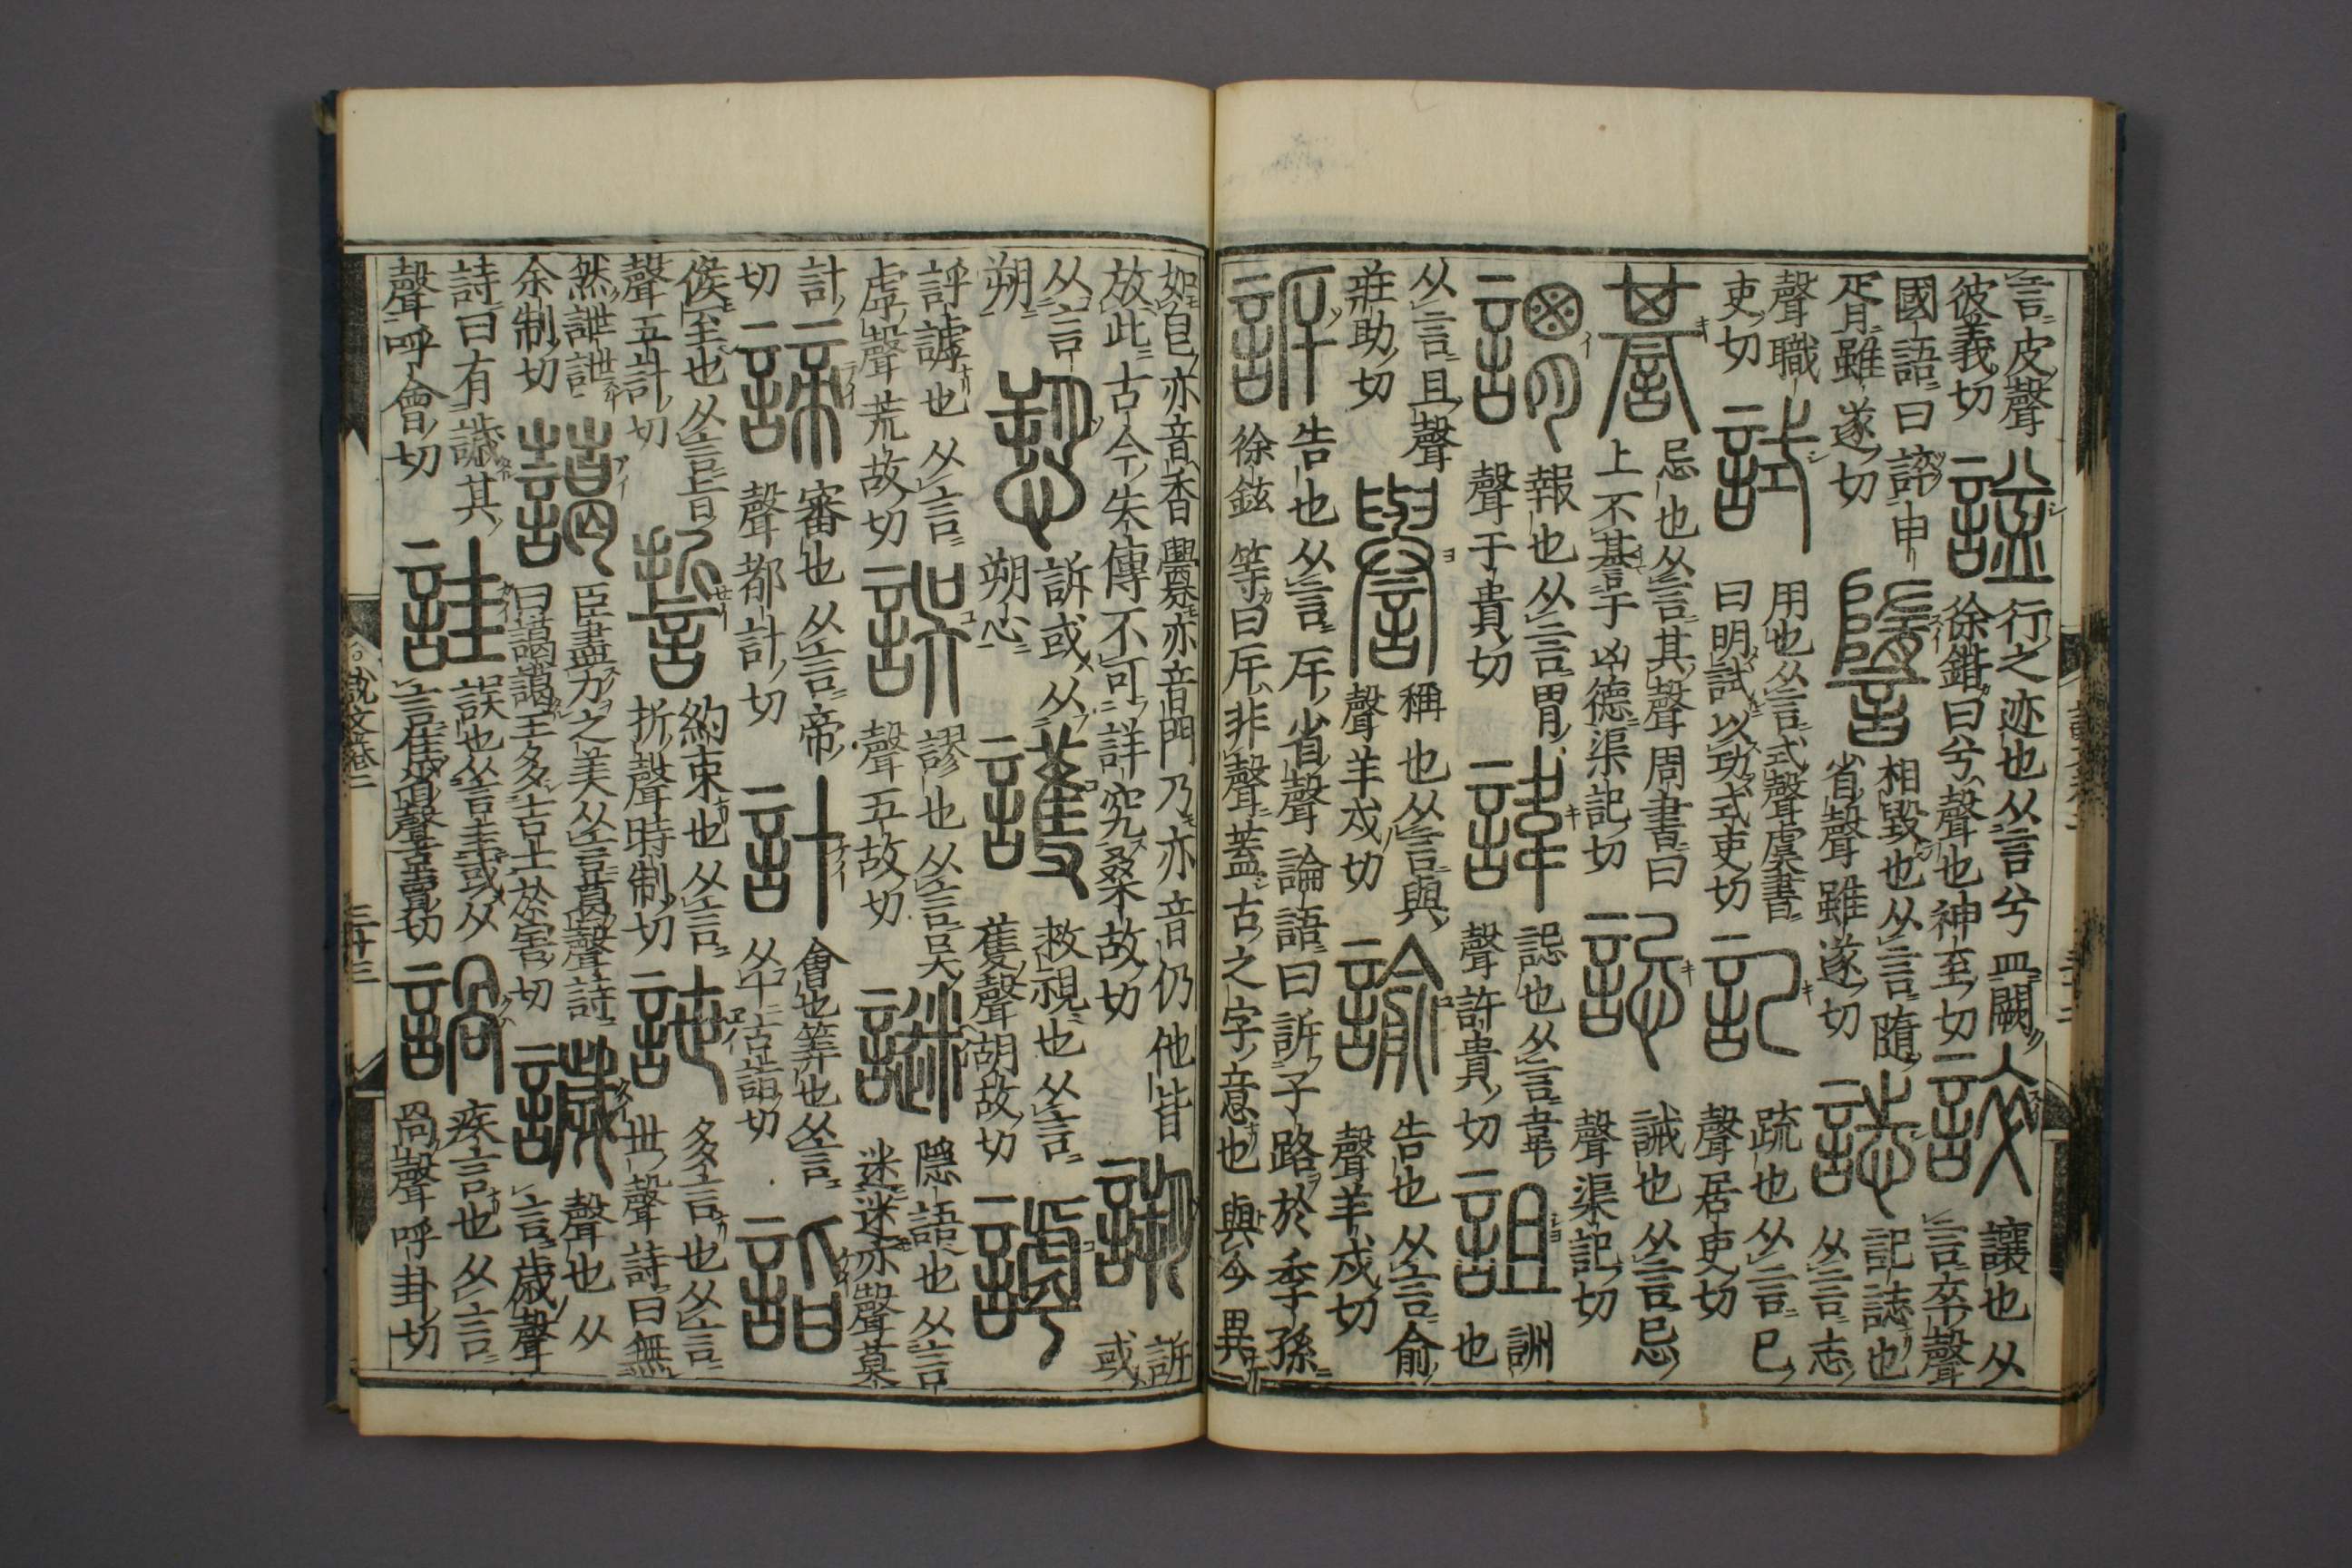 言皮聲
彼義切
諡
行之迹也从言兮皿闕
徐鍇曰兮聲也神至切
誶
讓也从
言卒聲
國語曰誶申
胥雖遂切
相毀也从言隨
省聲雖遂切
誌
記誌也
从言志
聲職
吏切
試
用也从言式聲虞書
曰明試以功式吏切
記
疏也从言己
聲居吏切
諅
忌也从言其聲周書曰
上不諅于凶德渠記切
誋
誡也从言忌
聲渠記切
謂
報也从言胃
聲于貴切
諱
誋也从言韋
聲許貴切
詛
詶也
从言且聲
莊助切
譽
稱也从言與
聲羊戍切
諭
告也从言俞
聲羊戍切
訴
告也从言斥省聲論語曰訴子路於季孫
徐鉉等曰斥非聲蓋古之字意也與今異
如皀亦音香釁亦音門乃亦音仍他皆
放此古今失傳不可詳究桑故切
訴或
从言
朔
愬
訴或从
朔心
護
救視也从言
蒦聲湖故切
謼
評謼也从言
虖聲荒故切
誤
謬也从言吳
聲五故切
謎
隱語也从言
迷迷亦聲莫
計
切
諦
審也从言帝
聲都計切
計
會也筭也从言
从十古詣切
詣
候至也从言旨
聲五計切
誓
約束也从言
折聲時制切
詍
多言也从言
世聲詩曰無
然詍詍
余制切
藹
臣盡力之美从言葛聲詩
曰藹藹王多吉士於害切
聲也从
言歲聲
詩曰有其
聲呼會切
詿
誤也从言圭或从
言佳省聲古賣切
疾言也从言
咼聲呼卦切
說文卷二
三十三